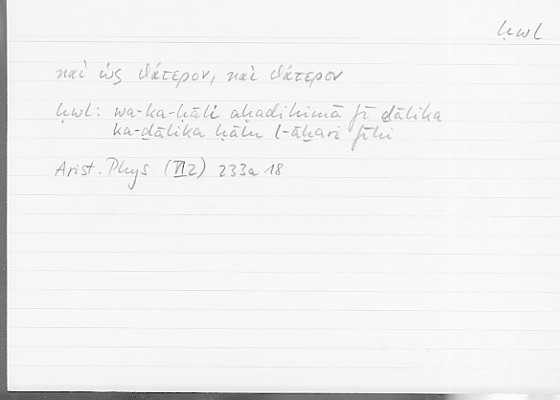 ḥwl
καὶ ὡς θάτερον, καὶ θάτερον
ḥwl: wa-ka-ḥāli aḥadihimā fī ḏālika
ka-ḏālika ḥālu l-āḫari fīhi
Arist. Phys. (VI 2) 233a 18